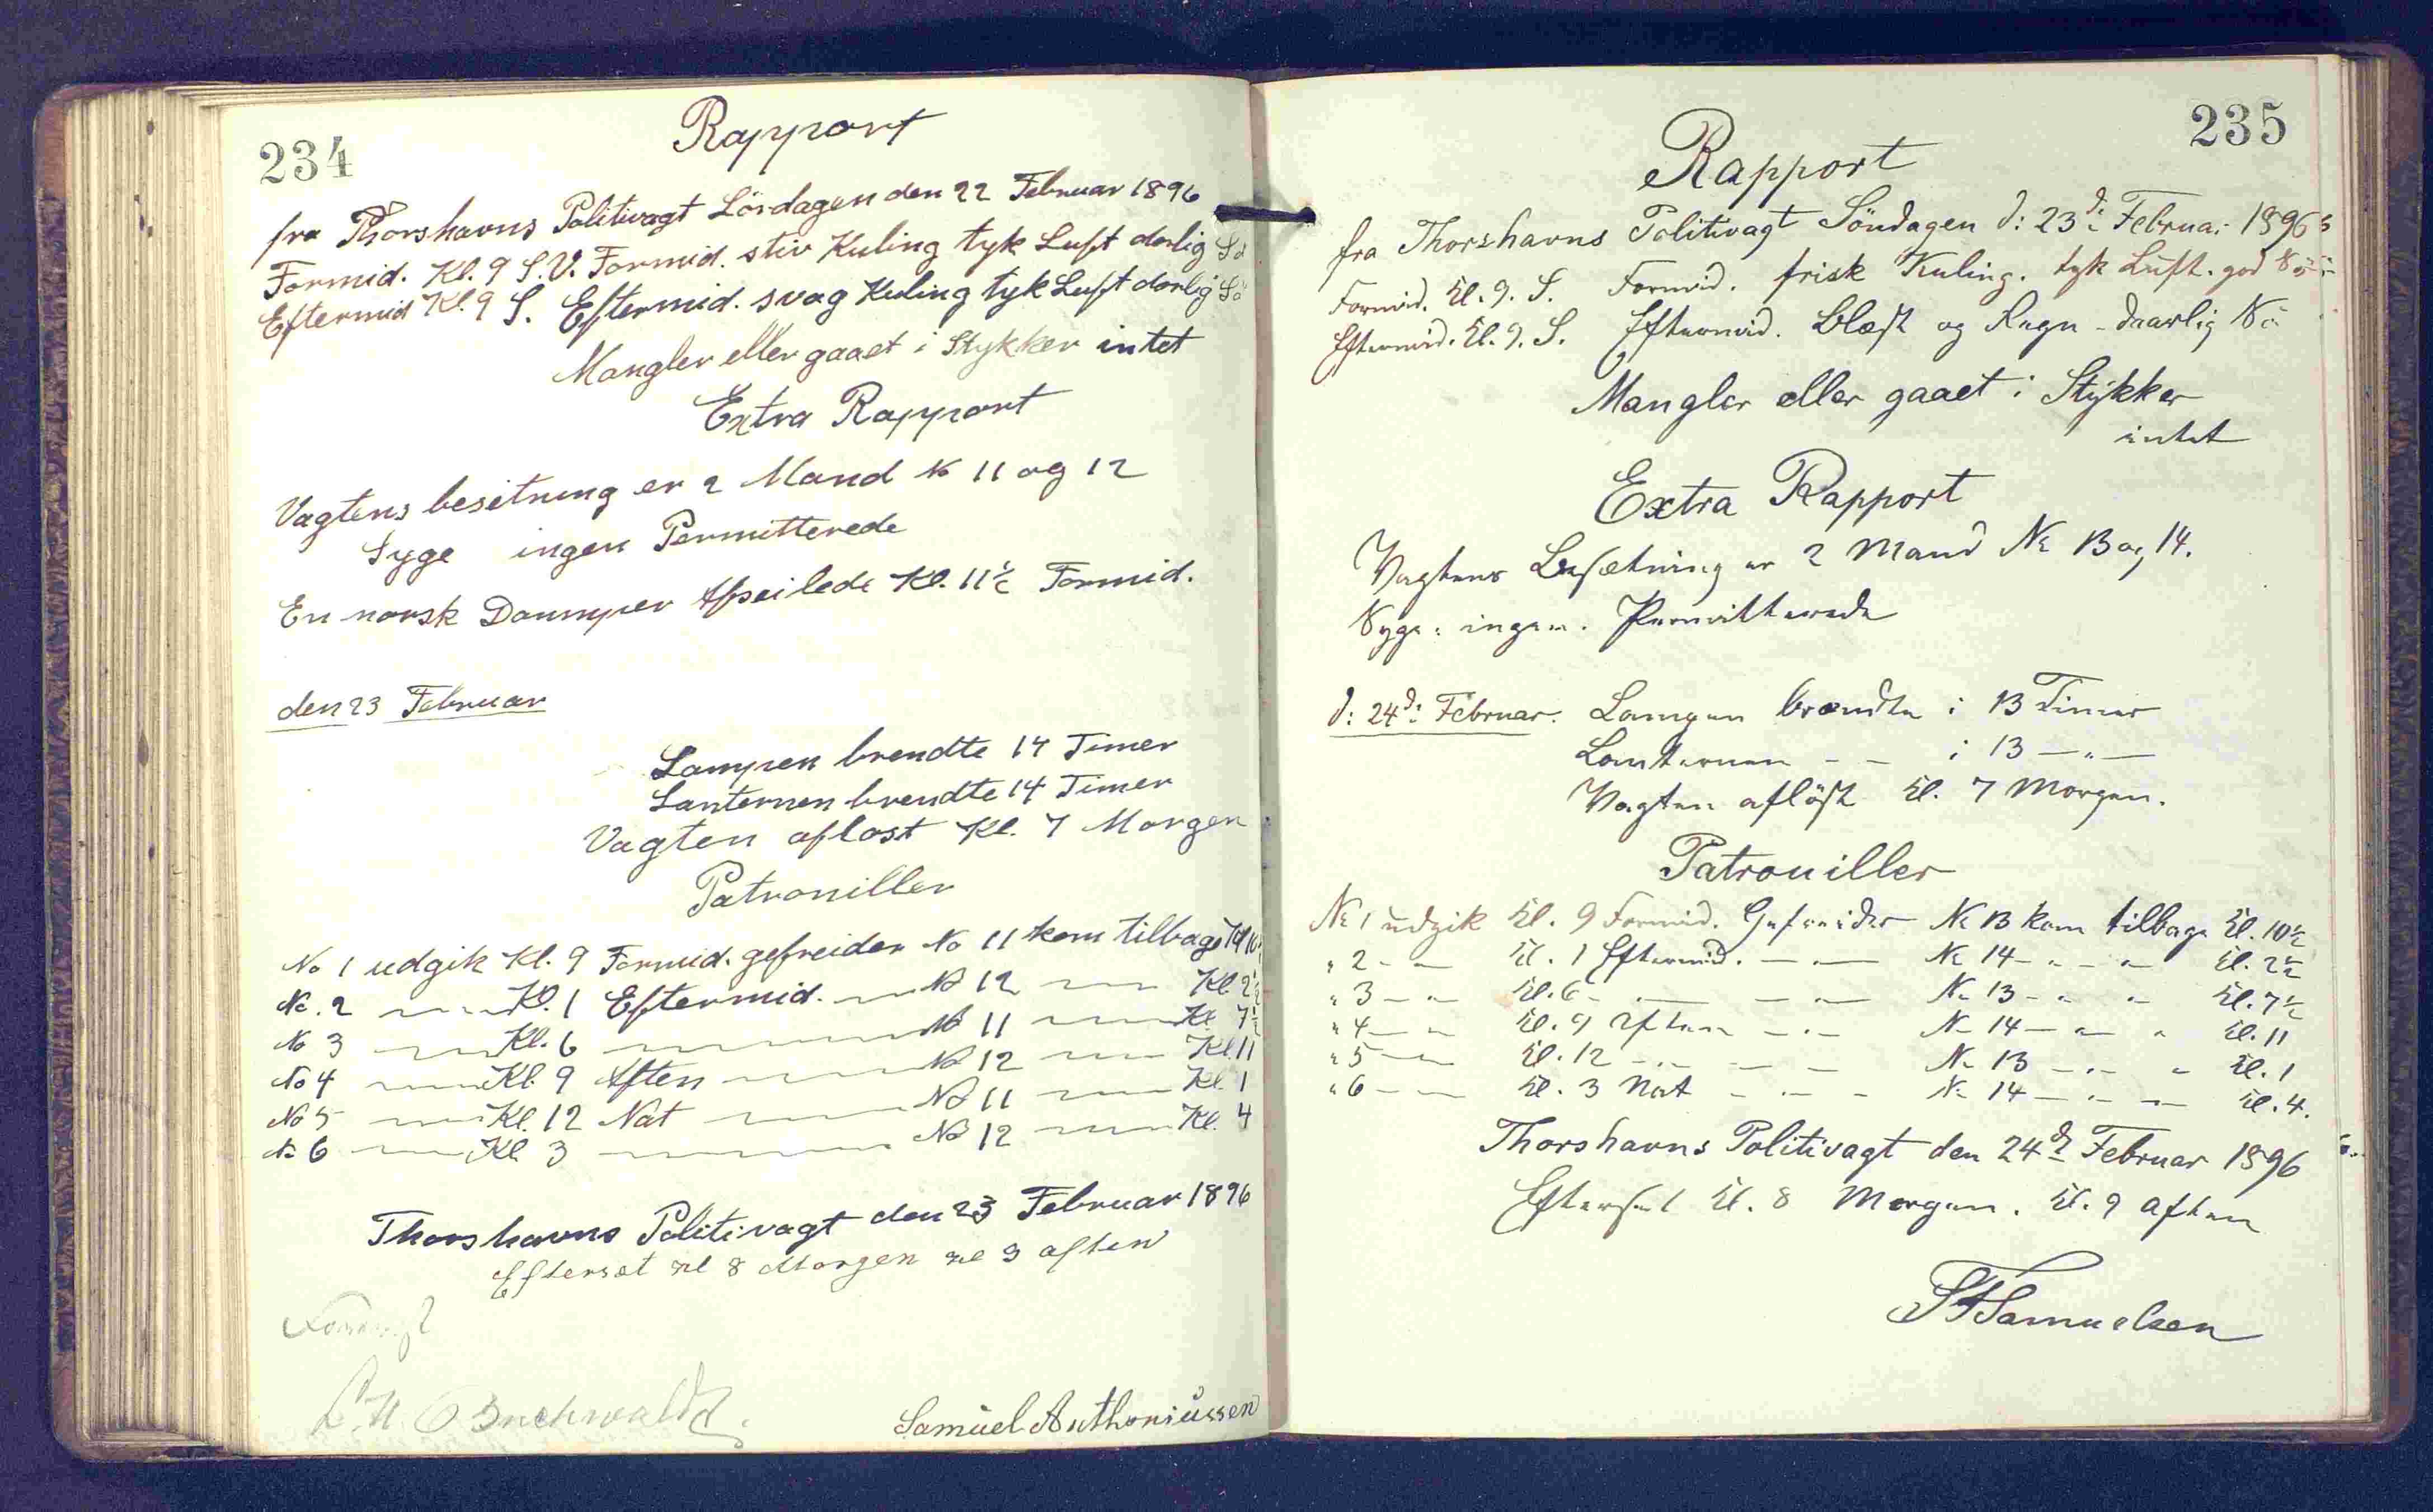 234
Rapport
fra Thorshavns Politivagt Lördagen den 22 Februar 1896
Formid. Kl. 9 S.V. Formid. stiv Kuling tyk Luft darlig Sö
Eftermid Kl. 9 S. Eftermid. svag Kuling tyk Luft darlig Sö
Mangler eller gaaet i Stykker intet
Extra Rapport
Vagtens besetning er 2 Mand No 11 og 12
Syge ingen Permitterede
En norsk Dampper Afseilede Kl. 11½ Formid.
den 23 Februar
Lampen brendte 14 Timer
Lanternen brendte 14 Timer
Vagten aflost Kl. 7 Morgen
Patrouiller
No 1 udgik Kl. 9 Formid. gefreider No 11 kom tilbage Kl 10½
No. 2 — „ — Kl. 1 Eftermid. — „ — No 12 — „ — Kl 2½
No 3 — „ — Kl. 6 — „ — „ — No 11 — „ — Kl 7½
No 4 — „ — Kl. 9 Aften — „ — No 12 — „ — Kl. 11
No 5 — „ — Kl. 12 Nat — „ — No 11 — „ — Kl. 1
No 6 — „ — Kl. 3 — „ — „ — No 12 — „ — Kl. 4
Thorshavns Politivagt den 23 Februar 1896
Efterset Kl 8 Morgen Kl 9 aften
L. H. Buchwaldt.
Samuel Anthoniussen
235
Rapport
fra Thorshavns Politivagt Söndagen d: 23d: Februar 1896
Formid. Kl. 9. S. Formid. frisk Kuling. tyk Luft. god Sö
Eftermid. Kl. 9. S. Eftermid. Blæst og Regn - daarlig Sö
Mangler eller gaaet i Stykker
intet
Extra Rapport
Vagtens Besætning er 2 Mand No 13 og 14.
Syge: ingen. Permitterede
d: 24d: Februar. Lampen brændte i 13 Timer
Lanternen - - i 13 — „ —
Vagten aflöst Kl. 7 Morgen.
Patrouiller
No 1 udgik Kl. 9 Formid. Gefreider No 13 kom tilbage Kl. 10½
„ 2 - „ - Kl. 1 Eftermid. — „ — No 14 - „ - „ - Kl. 2½
„ 3 - „ - Kl. 6 - „ — — „ — No 13 - „ - „ Kl. 7½
„ 4 - „ - Kl. 9 Aften — „ — No 14 — „ - „ Kl. 11
„ 5 - „ - Kl. 12 - „ - — — No 13 - „ - „ Kl. 1
„ 6 - „ - Kl. 3 Nat - „ - - No 14 - „ - „ - Kl. 4.
Thorshavns Politivagt den 24d Februar 1896
Efterset Kl. 8 Morgen. Kl. 9 Aften
Samuelsen